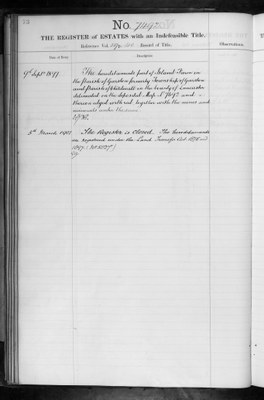 No.
THE REGISTER of ESTATES with an Indefeasible Title.
Reference Vol. Record of Title.
Date of Entry
Description
Observations
9th Sept 1877 The hereditaments part of Island Farm in
the Parish of Garston formerly Township of Garston
and Parish of Childwall in the County of Lancaster
delineated on the deposited Map No 749 and
thereon edged with red together with the mines and
minerals under the same.
5th March 1902 The Register is Closed. The hereditaments
are registered under the Land Transfer Acts 1875 and
1897